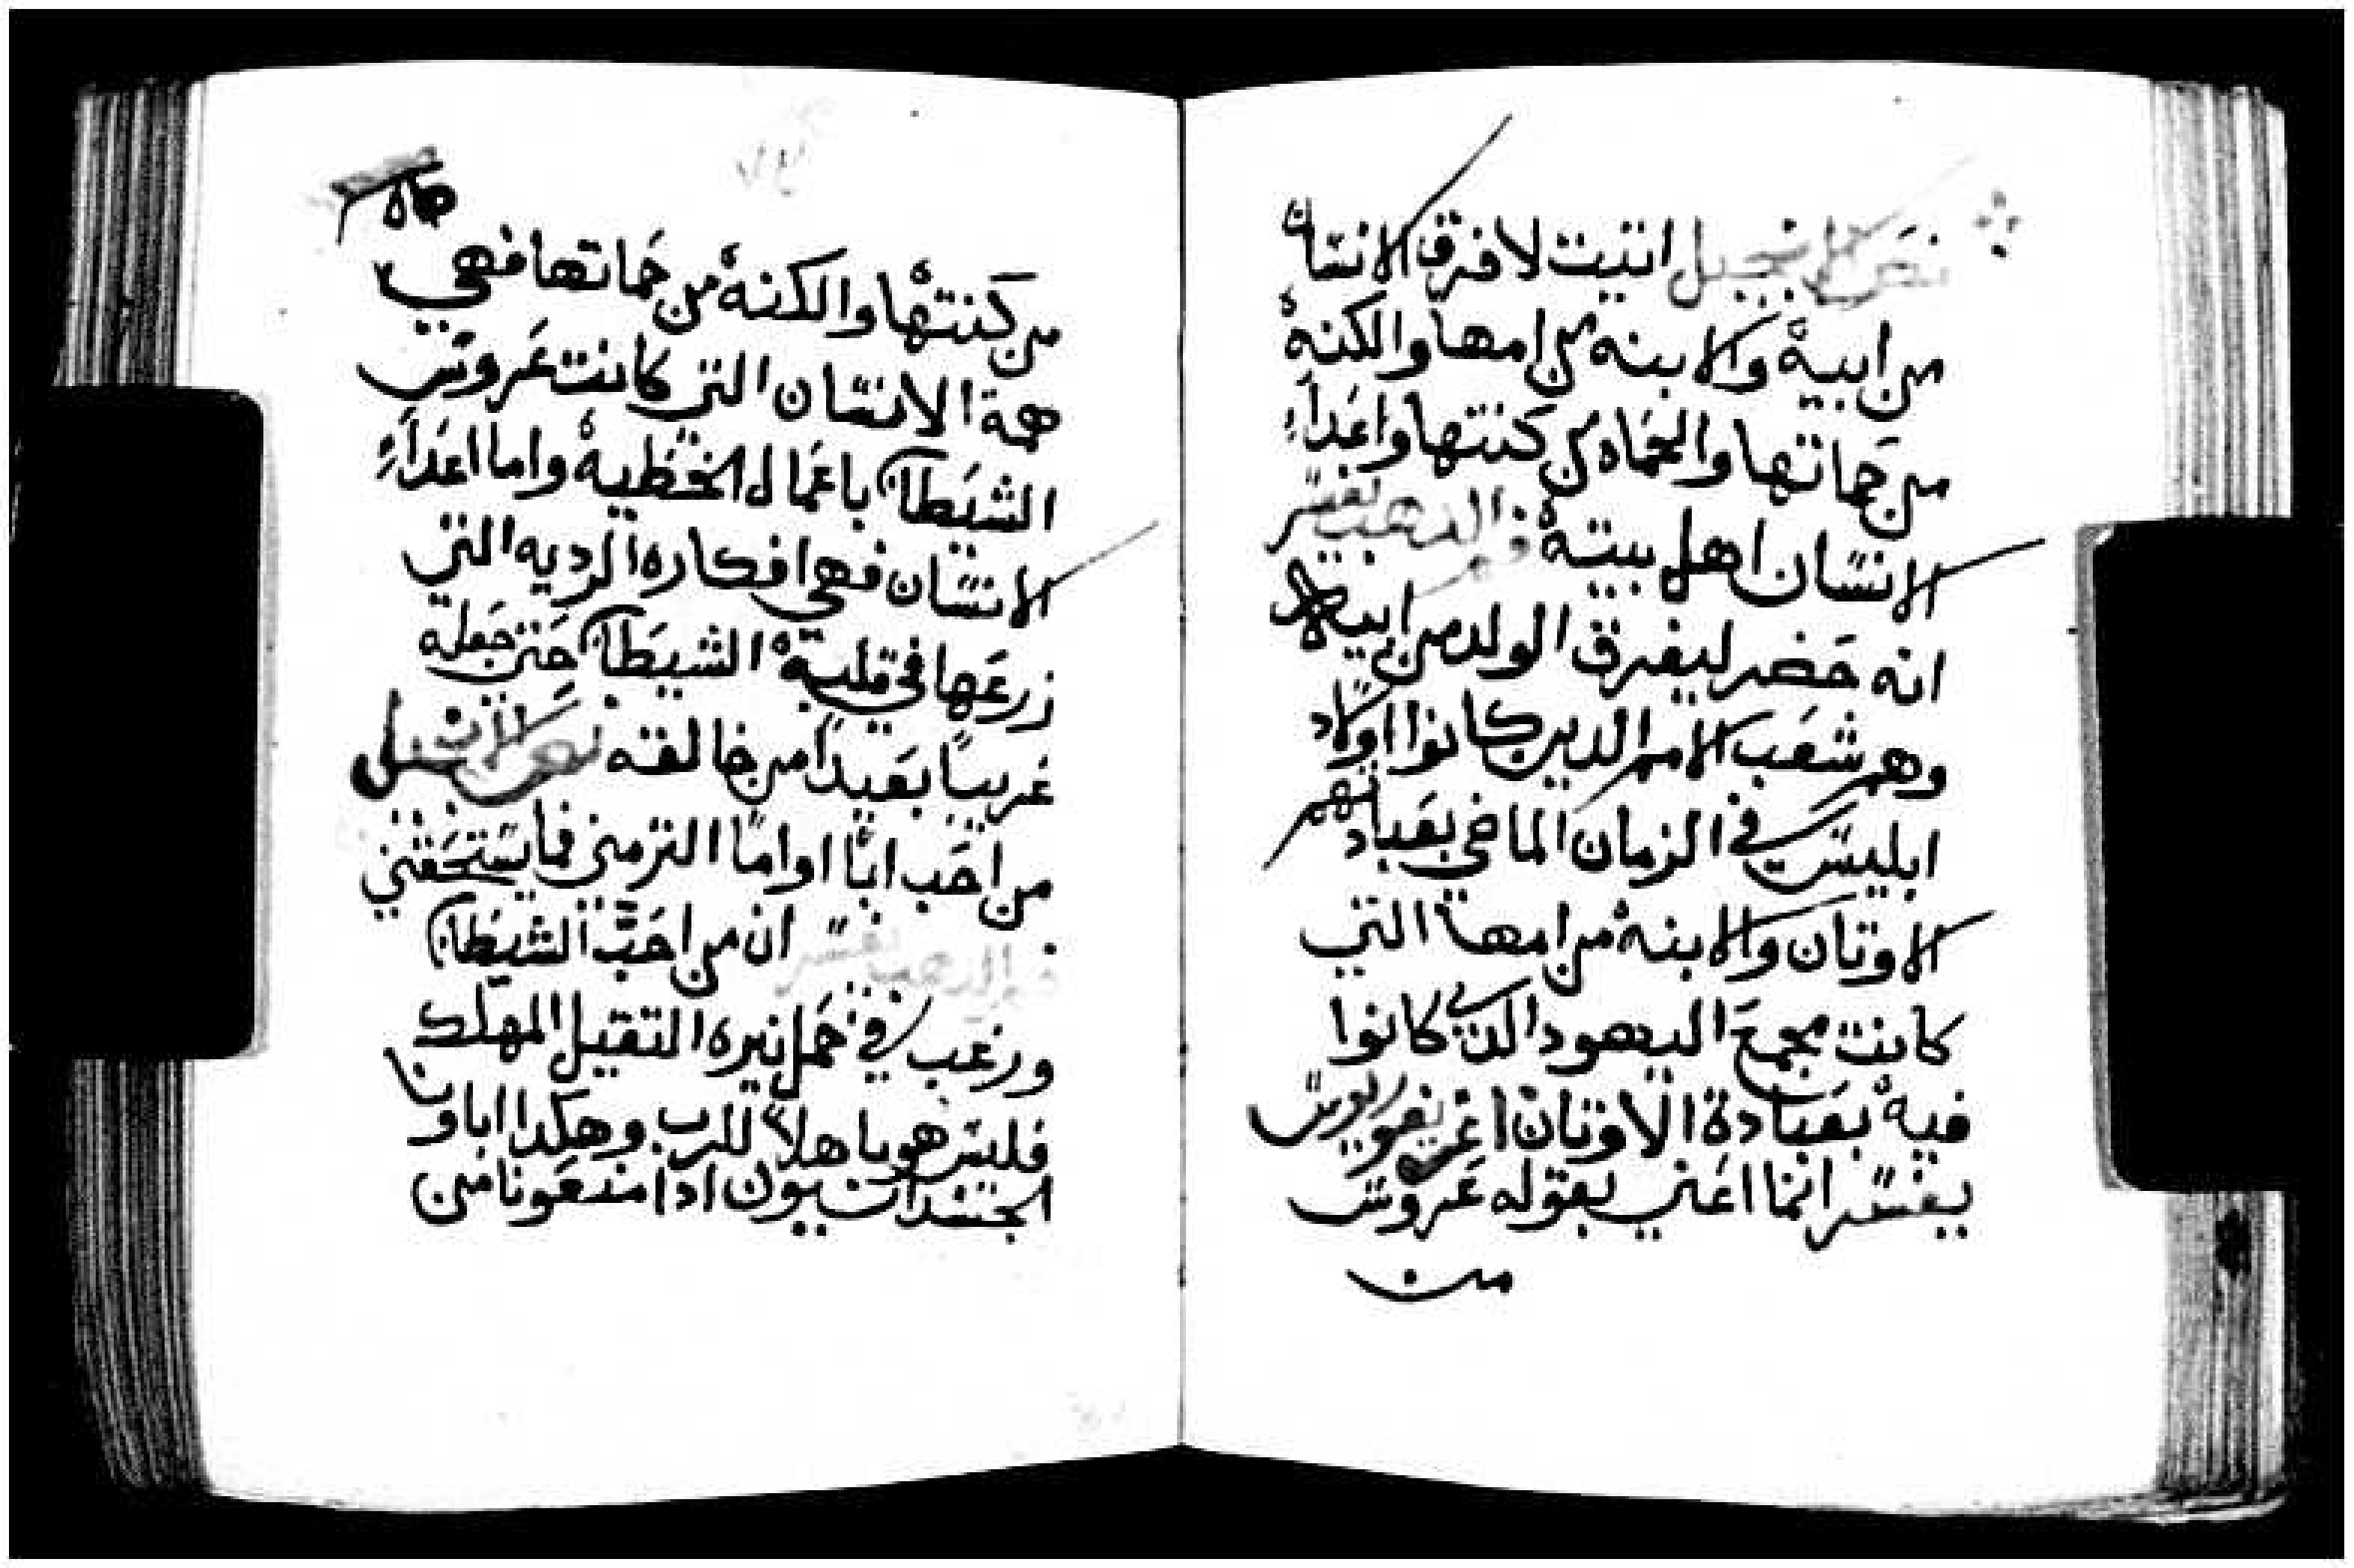 نص الانجيل اتيت لافرق الانسان
من ابيه والابنه من امها والكنه
من حماتها والحماه من كنتها واعداء
الانسان اهل بيته فم الدهب يفسر
انه حضر ليفرق الولد من ابيه
وهم شعب الامم الدين كانوا اولاد
ابليس في الزمان الماضي بعبادتهم
الاوتان والابنه من امها التي
كانت مجمع اليهود الدي كانوا
فيه بعبادة الاوتان اغريغوريوس
يفسر انما اعني بقوله عروس
من
من كنتها والكنه من حماتها فهي
همة الانسان التي كانت عروس
الشيطان باعمال الخطيه واما اعداء
الانسان فهي افكاره الرديه التي
زرعها في قلبه الشيطان حتى جعله
غريباً بعيداً من خالقه نص الانجيل
من احب اباً او اماً اكتر مني فما يستحقني
فم الدهب يفسر ان من احب الشيطان
ورغب في حمل نيره التقيل المهلك
فليس هو باهلاً للرب وهكدا اباونا
الجسدانيون ادا منعونا من